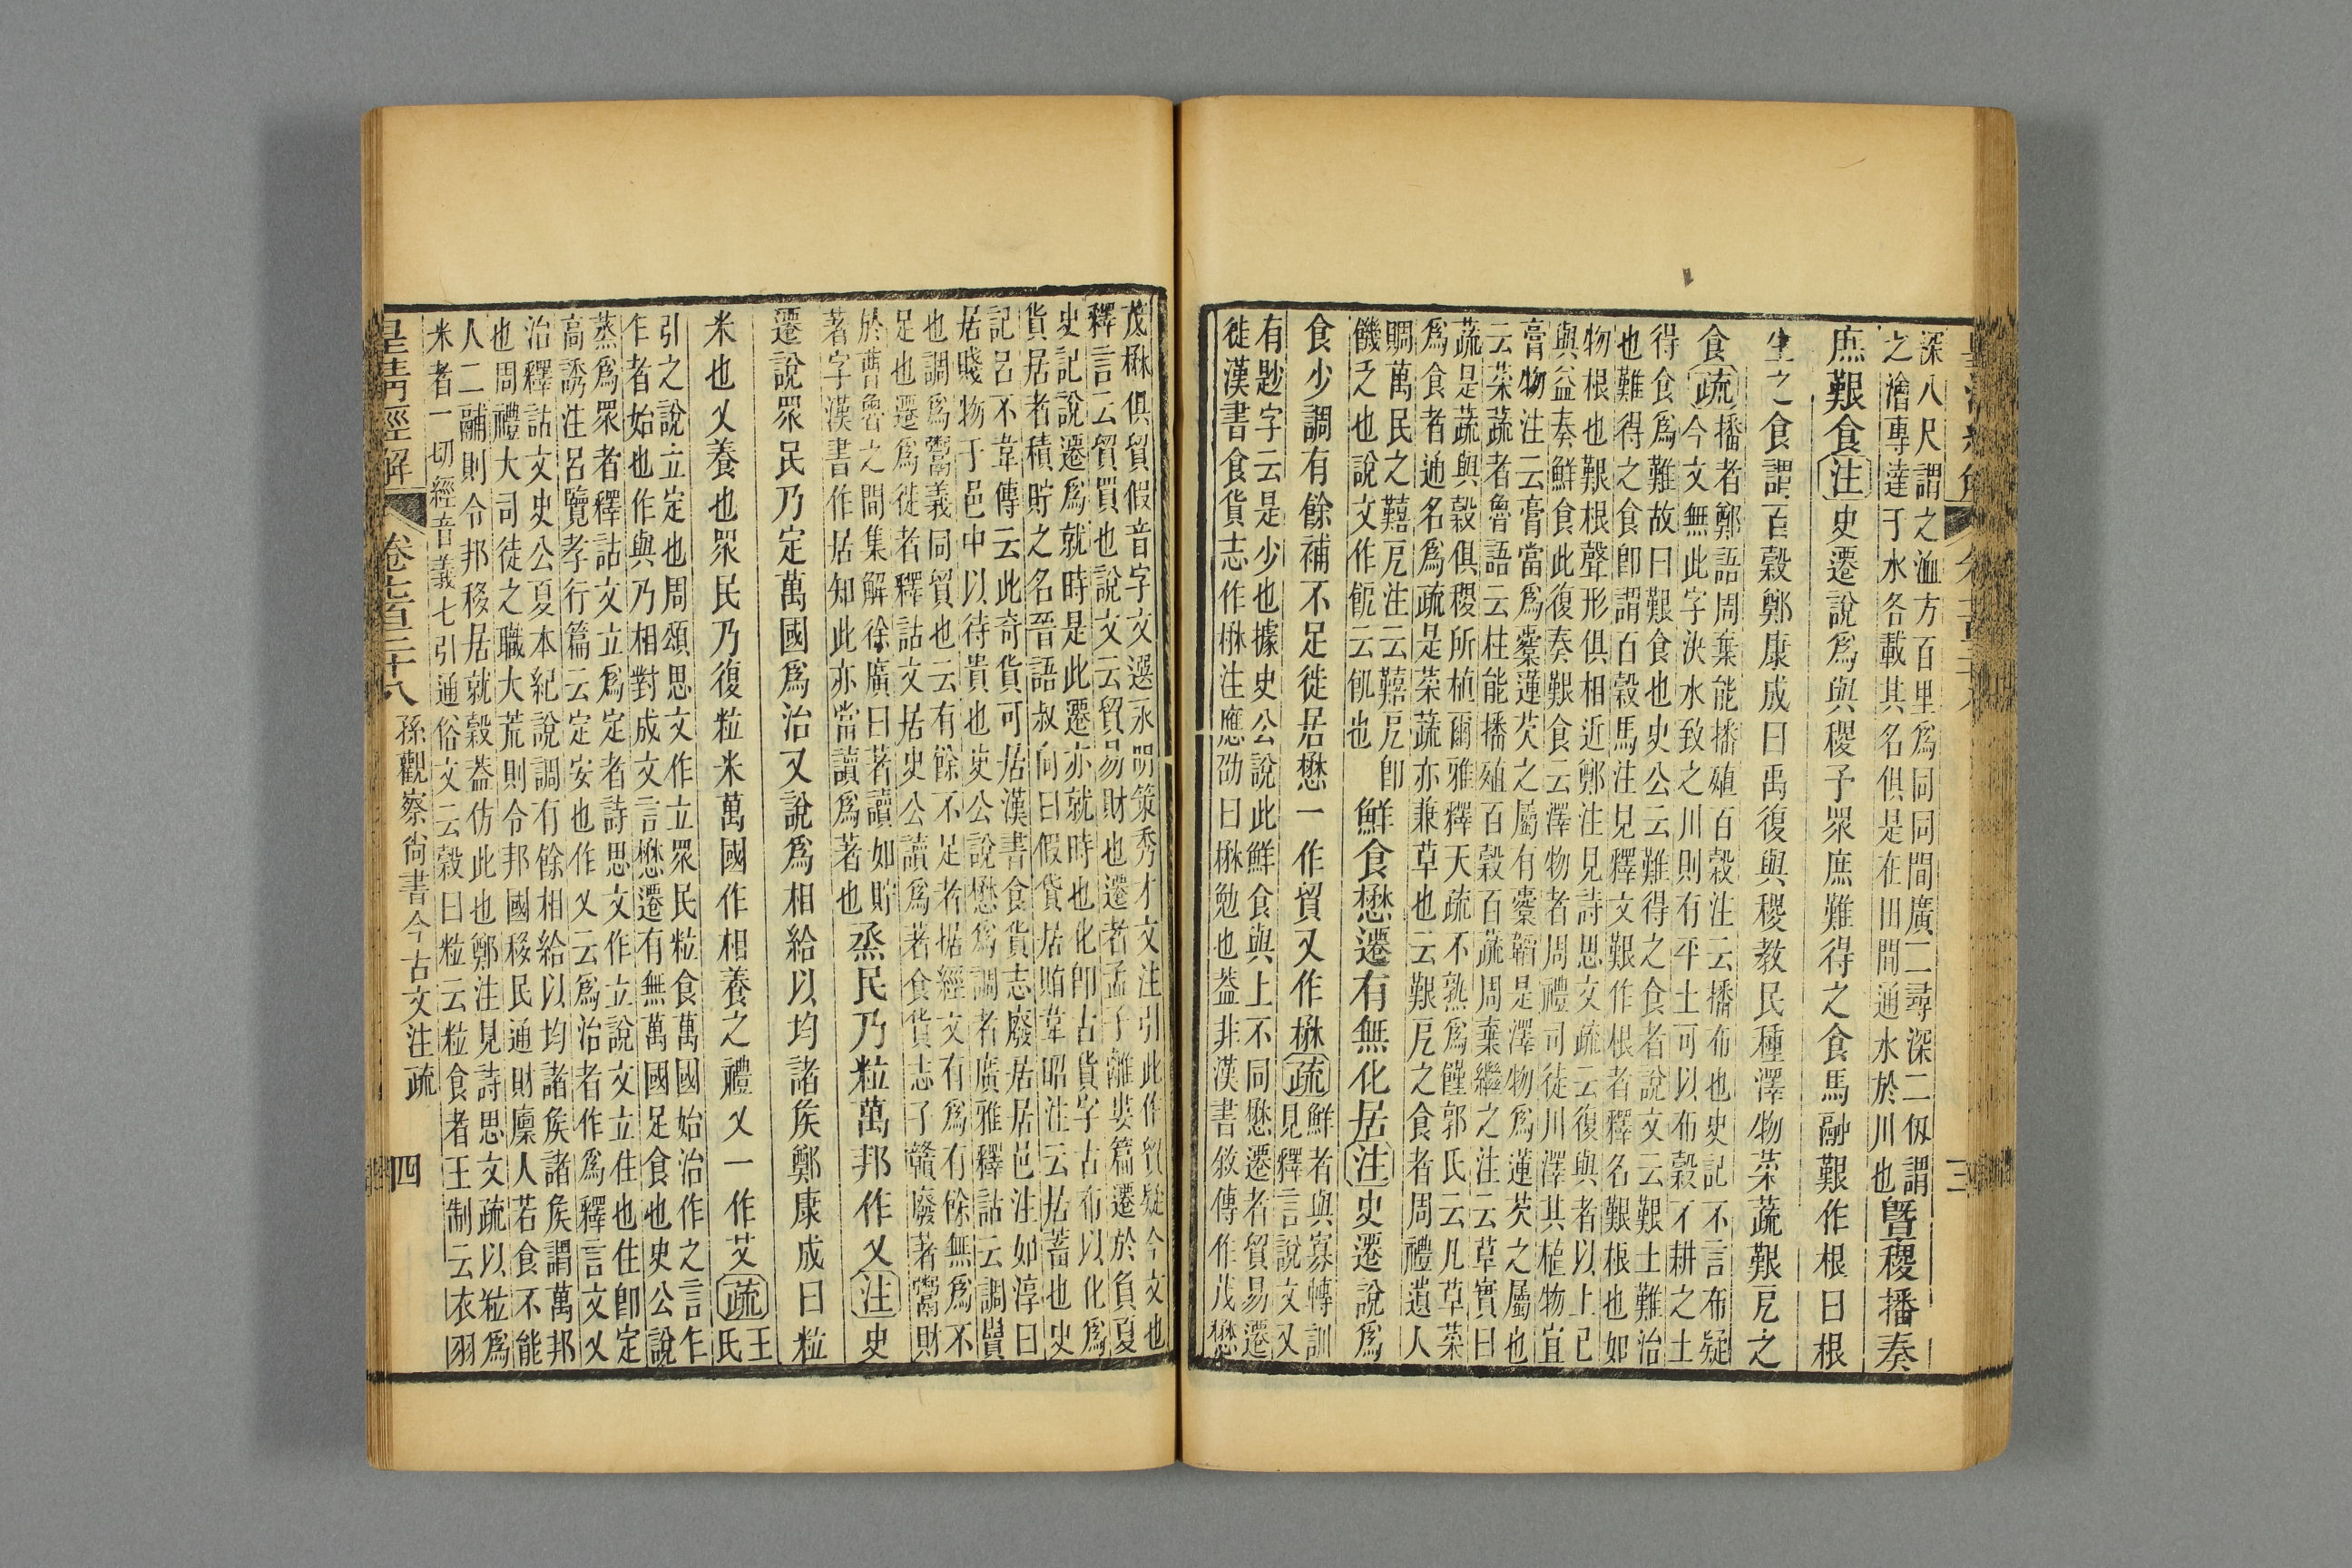 深八尺謂之洫方百里爲同同間廣二尋深二仞謂
之澮專達于水各載其名俱是在田間通水於川也
暨稷播奏
庶艱食注史遷說爲與稷予眾庶難得之食馬融艱作根曰根
生之食謂百穀鄭康成曰禹復與稷教民種澤物菜蔬艱戹之
食疏
播者鄭語周棄能播殖百穀注云播布也史記不言布疑
今文無此字決水致之川則有平土可以布穀不耕之土
得食爲難故曰艱食也史公云難得之食者說文云艱土難治
也難得之食卽謂百穀馬注見釋文艱作根者釋名艱根也如
物根也艱根聲形俱相近鄭注見詩思文疏云復與者以上已
與益奏鮮食此復奏艱食云澤物者周禮司徒川澤其植物宜
膏物注云膏當爲櫜蓮芡之屬有櫜韜是澤物爲蓮芡之屬也
云菜蔬者魯語云柱能播殖百穀百蔬周棄繼之注云草實曰
蔬是蔬與穀俱稷所植爾雅釋天蔬不熟爲饉郭氏云凡草菜
爲食者通名爲蔬是菜蔬亦兼草也云艱戹之食者周禮遺人
賙萬民之囏戹注云囏戹卽
饑乏也說文作飢云飢也
鮮食懋遷有無化居注史遷說爲
食少調有餘補不足徙居懋一作貿又作楙疏
鮮者與寡轉訓
見釋言說文又
有尟字云是少也據史公說此鮮食與上不同懋遷者貿易遷
徙漢書食貨志作楙注應劭曰楙勉也蓋非漢書敘傳作茂懋
茂楙俱貿假音字文選永明策秀才文注引此作貿疑今文也
釋言云貿買也說文云貿易財也遷者孟子離婁篇遷於負夏
史記說遷爲就時是此遷亦就時也化卽古貨字古布以化爲
貨居者積貯之名晉語叔向曰假貸居賄韋昭注云居蓄也史
記呂不韋傳云此奇貨可居漢書食貨志廢居居邑注如淳曰
居賤物于邑中以待貴也史公說懋爲調者廣雅釋詁云調賣
也調爲鬻義同貿也云有餘不足者据經文有爲有餘無爲不
足也遷爲徙者釋詁文居史公讀爲著食貨志子贛廢著鬻財
於曹魯之間集解徐廣曰著讀如貯
著字漢書作居知此亦當讀爲著也
烝民乃粒萬邦作乂注史
遷說眾民乃定萬國爲治又說爲相給以均諸侯鄭康成曰粒
米也乂養也眾民乃復粒米萬國作相養之禮乂一作艾疏
王
氏
引之說立定也周頌思文作立眾民粒食萬國始治作之言乍
乍者始也作與乃相對成文言懋遷有無萬國足食也史公說
蒸爲眾者釋詁文立爲定者詩思文作立說文立住也住卽定
高誘注呂覽孝行篇云定安也作乂云爲治者作爲釋言文乂
治釋詁文史公夏本紀說調有餘相給以均諸侯諸侯謂萬邦
也周禮大司徒之職大荒則令邦國移民通財廩人若食不能
人二鬴則令邦移居就穀蓋仿此也鄭注見詩思文疏以粒爲
米者一切經音義七引通俗文云穀曰粒云粒食者王制云衣羽
皇淸經解 卷七百三十八 孫觀察尙書今古文注疏 四
三